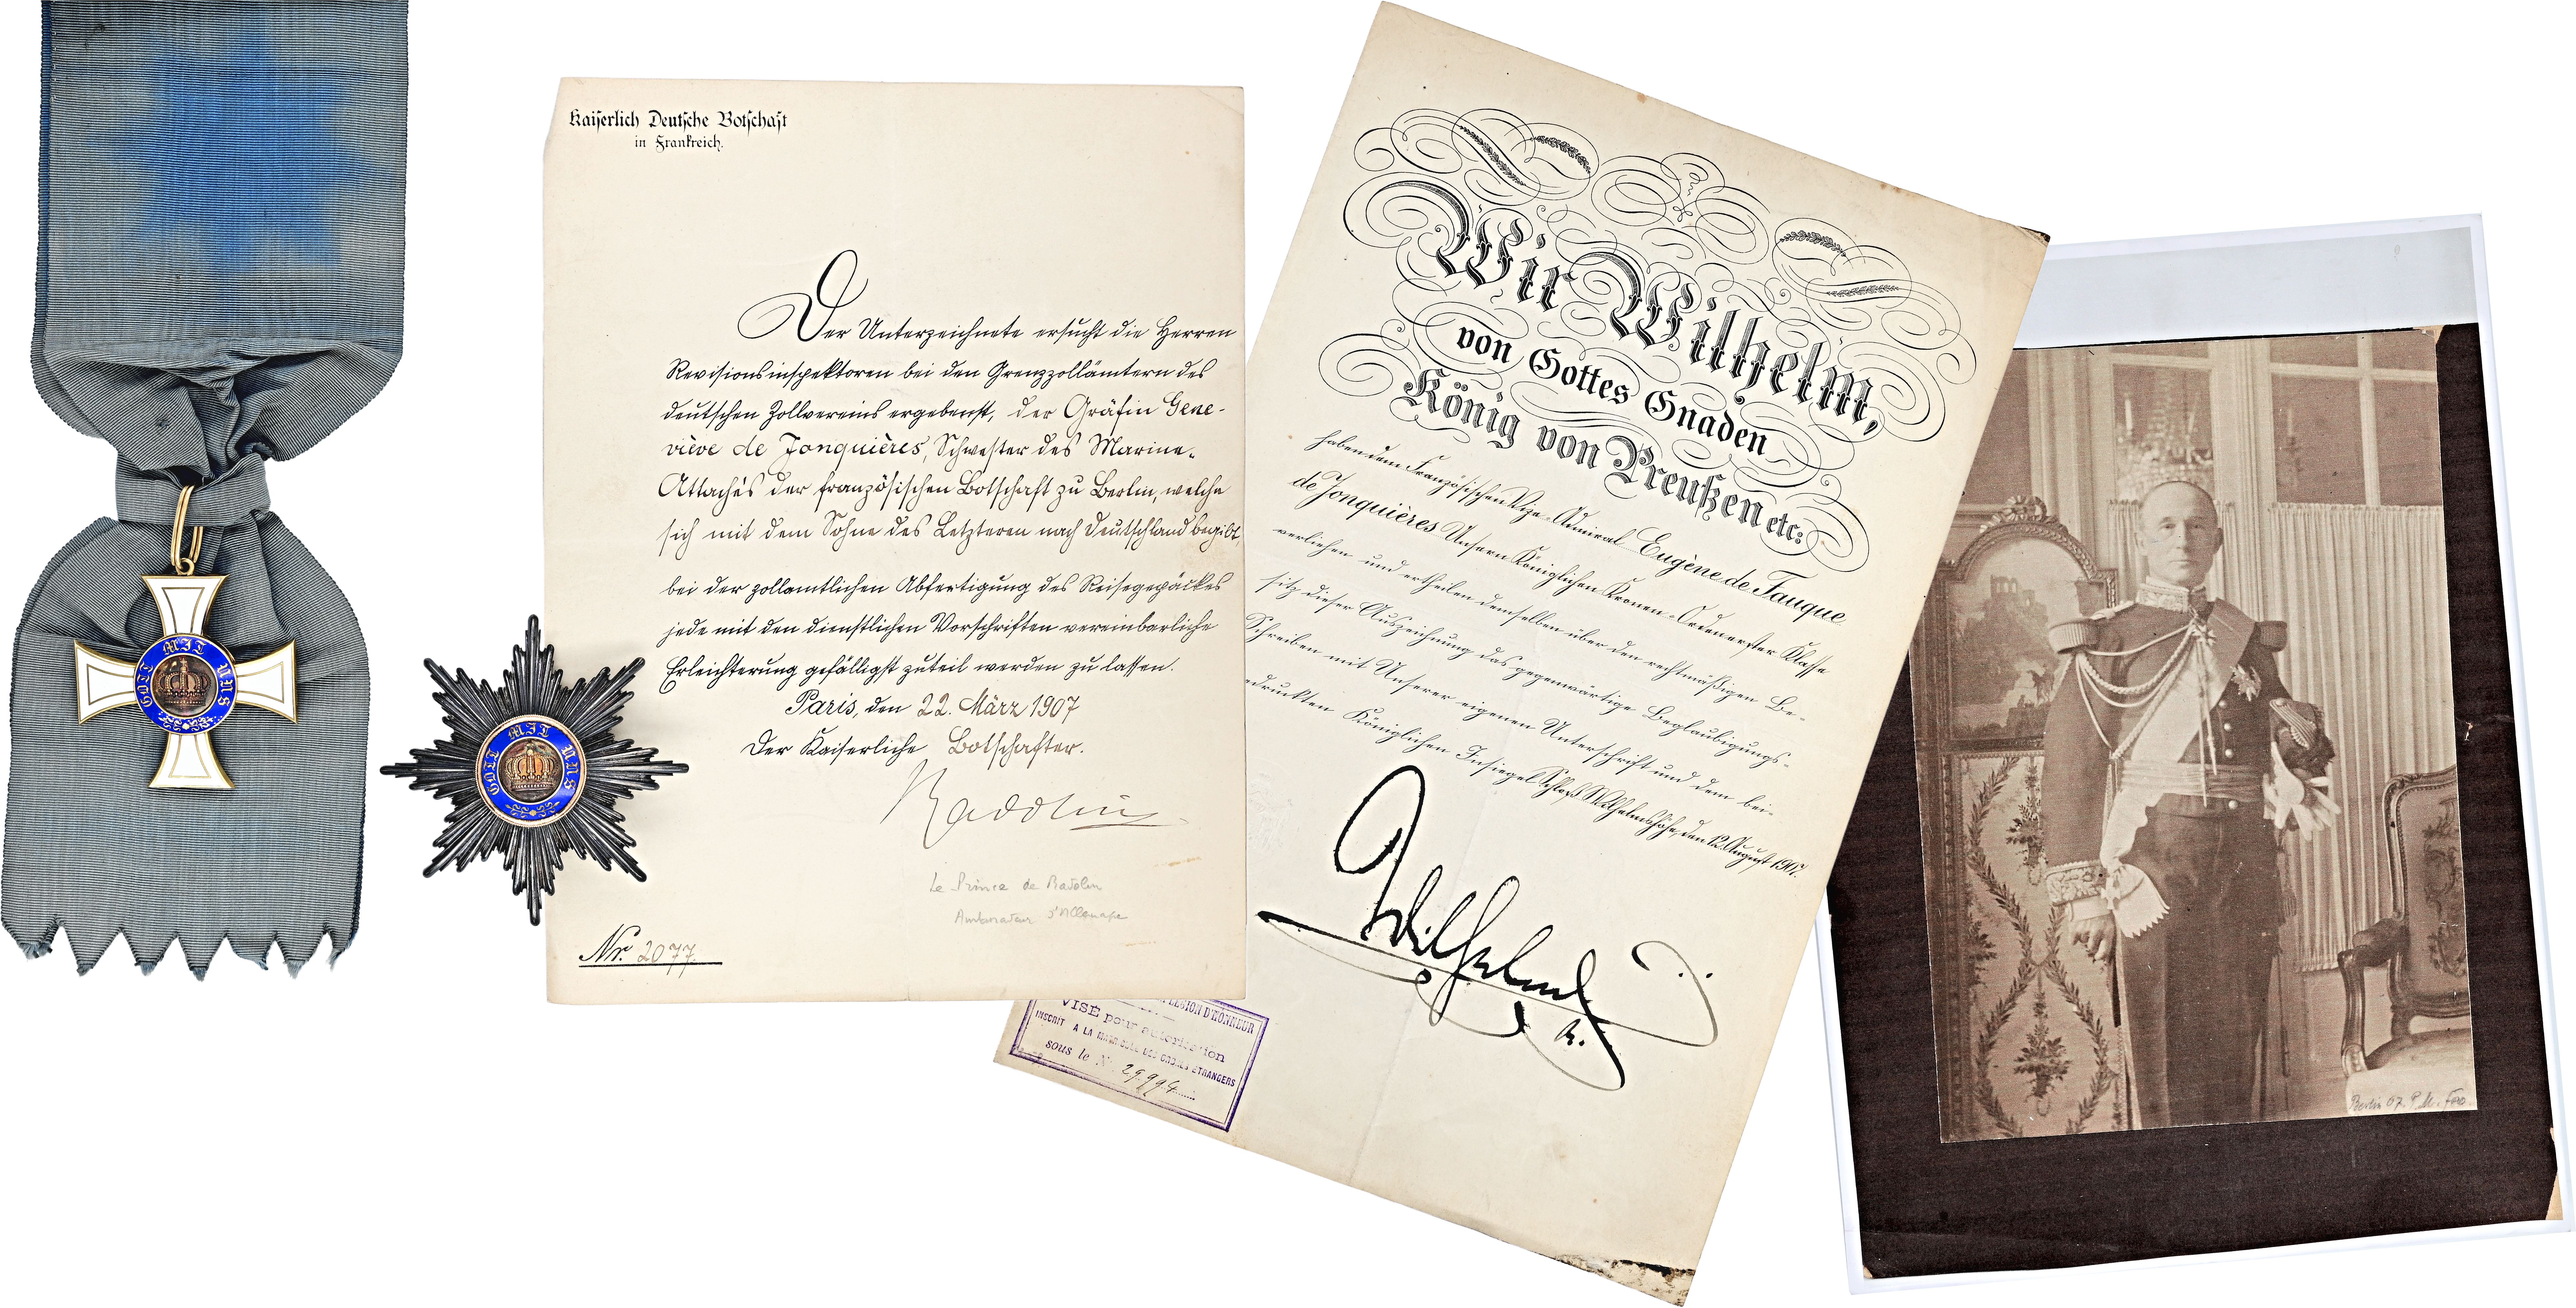 GOTT MIT UNS
GOTT MIT UNS
Kaiserlich Deutsche Botschaft
in Frankreich.
Der Unterzeichnete ersucht die Herren
Revisionsinspektoren bei den Grenzzollämtern des
deutschen Zollvereins ergebenst, der Gräfin Gene-
viève de Jonquières, Schwester des Marine-
Attachés der französischen Botschaft zu Berlin, welche
sich mit dem Sohne des Letzteren nach Deutschland begibt,
bei der zollamtlichen Abfertigung des Reisegepäckes
jede mit den dienstlichen Vorschriften vereinbarliche
Erleichterung gefälligst zuteil werden zu lassen.
Paris, den 22. März 1907
Der Kaiserliche Botschafter.
Radolin
Le Prince de Radolin
Ambassadeur d'Allemagne
Nr. 2077.
Wir Wilhelm,
von Gottes Gnaden
König von Preußen etc:
haben dem Französischen Vize-Admiral Eugène de Fauque
de Jonquières Unsern Königlichen Kronen-Orden erster Klasse
verliehen und ertheilen demselben über den rechtmäßigen Be-
sitz dieser Auszeichnung das gegenwärtige Beglaubigungs-
Schreiben mit Unserer eigenen Unterschrift und dem bei-
gedruckten Königlichen Insiegel. Schloß Wilhelmshöhe, den 12. August 1907.
Wilhelm
R.
LEGION D'HONNEUR
VISÉ pour autorisation
INSCRIT A LA MATRICULE DES ORDRES ÉTRANGERS
sous le N° 29.994
Berlin 07. P. M.